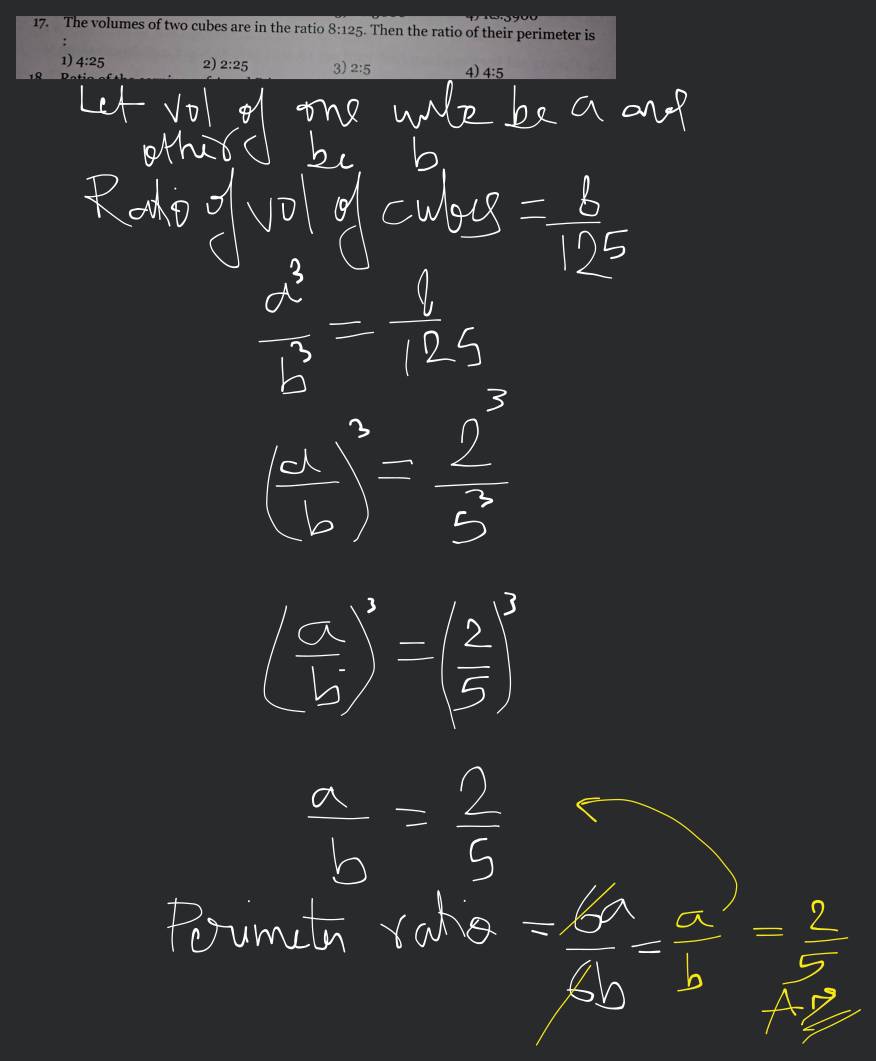 17. The volumes of two cubes are in the ratio 8:125. Then the ratio of their perimeter is
:
1) 4:25 2) 2:25 3) 2:5 4) 4:5
18
Let vol of one cube be a and
others be b
Ratio of vol of cubes = 8/125
a³/b³ = 8/125
(a/b)³ = 2³/5³
(a/b)³ = (2/5)³
a/b = 2/5
Perimeter ratio = 6a/6b = a/b = 2/5
Ans